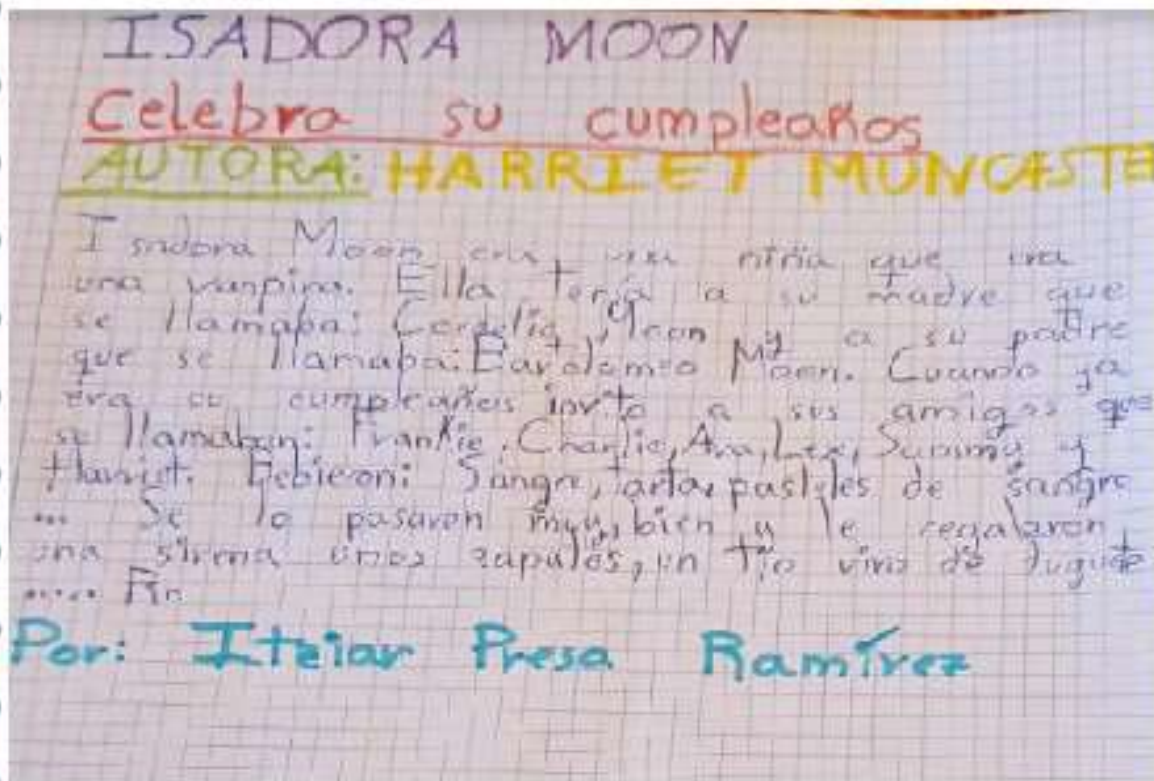 ISADORA MOON
Celebra su cumpleaños
AUTORA: HARRIET MUNCASTE
Isadora Moon era una niña que era
una vanpira. Ella tenía a su madre que
se llamaba: Cordelia, Moon y a su padre
que se llamaba: Bartolomeo Moon. Cuando ya
era su cumpleaños invito a sus amigos que
se llamaban: Frankie, Charlie, Ana, Lex, Sunsina y
Harriet. Bebieron: Sangre, tarta, pasteles de sangre
... Se lo pasaron muy bien y le regalaron
una sirena unos zapatos, un tio vivo de juguete
..... Fin
Por: Itziar Presa Ramírez